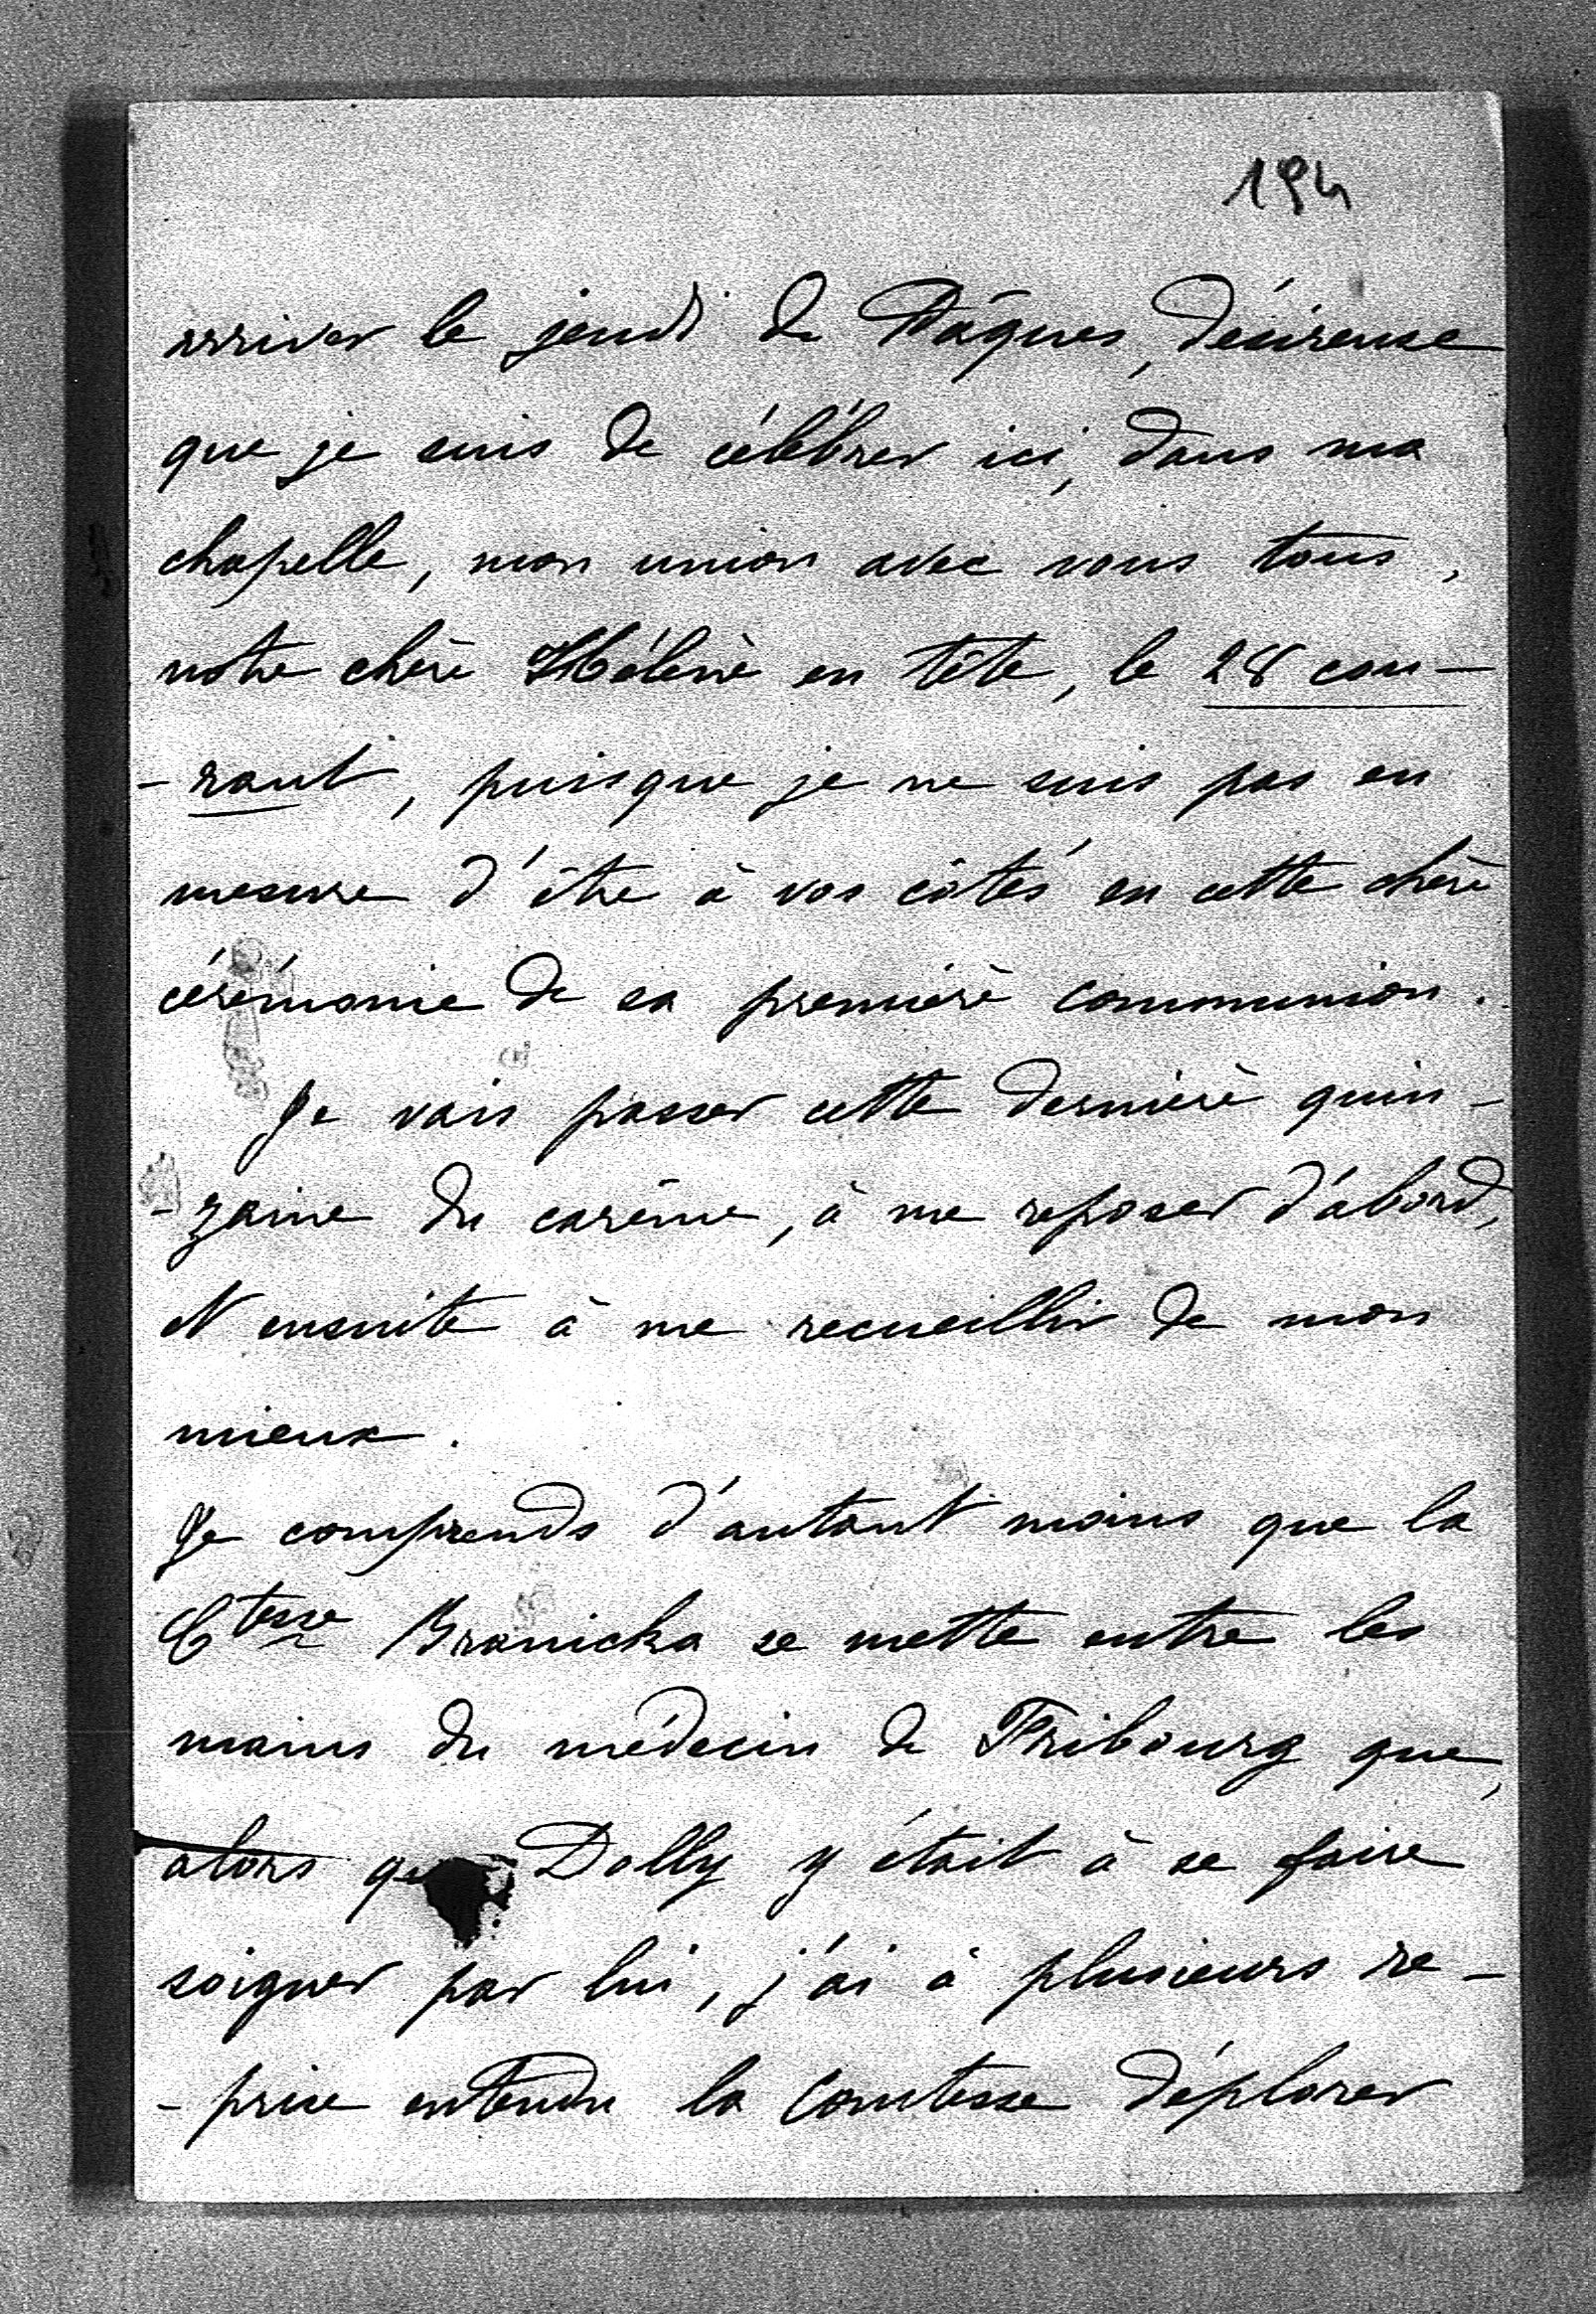 194
arriver le jeudi de Pâques, désireuse
que je suis de célébrer ici, dans ma
chapelle, mon union avec vous tous,
notre chère Hélène en tête, le 28 cou-
-rant, puisque je ne suis pas en
mesure d'être à vos côtés en cette chère
cérémonie de sa première communion.
Je vais passer cette dernière quin-
-zaine du carême, à me reposer d'abord,
et ensuite à me recueillir de mon
mieux.
Je comprends d'autant moins que la
Ctesse Branicka se mette entre les
mains du médecin de Fribourg que,
alors que Dolly y était à se faire
soigner par lui, j'ai à plusieurs re-
-prise entendu la comtesse déplorer